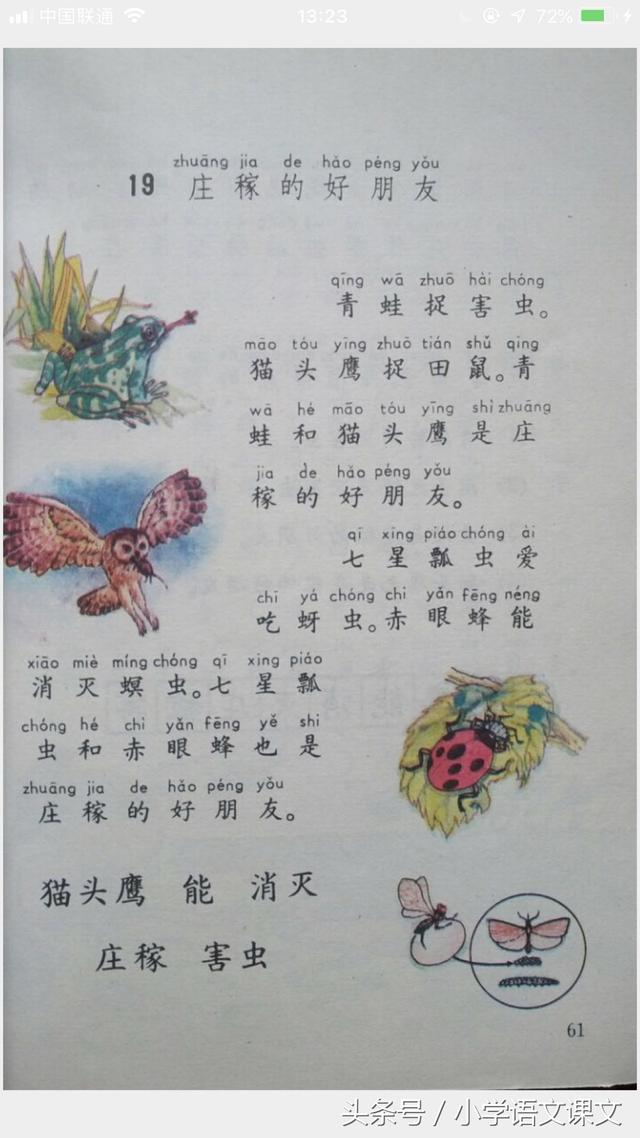 中国联通
13:23
72%
zhuāng jia de hǎo péng yǒu
19 庄稼的好朋友
qīng wā zhuō hài chóng
青蛙捉害虫。
māo tóu yīng zhuō tián shǔ qing
猫头鹰捉田鼠。青
wā hé māo tóu yīng shì zhuāng
蛙和猫头鹰是庄
jia de hǎo péng yǒu
稼的好朋友。
qī xīng piáo chóng ài
七星瓢虫爱
chī yá chóng chì yǎn fēng néng
吃蚜虫。赤眼蜂能
xiāo miè míng chóng qī xīng piáo
消灭螟虫。七星瓢
chóng hé chì yǎn fēng yě shì
虫和赤眼蜂也是
zhuāng jia de hǎo péng yǒu
庄稼的好朋友。
猫头鹰 能 消灭
庄稼 害虫
61
头条号／小学语文课文